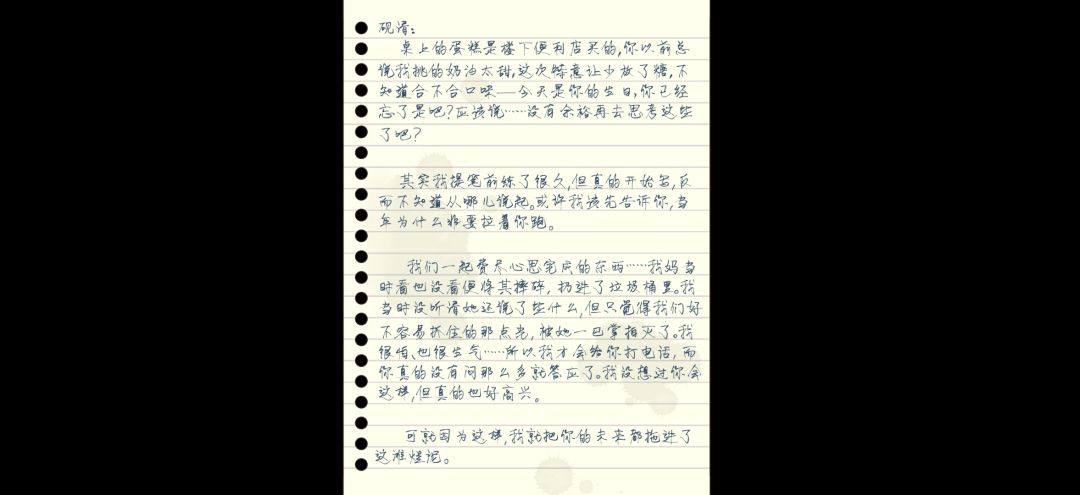 砚清：
桌上的蛋糕是楼下便利店买的,你以前总
说我挑的奶油太甜,这次特意让少放了糖,不
知道合不合口味——今天是你的生日,你已经
忘了是吧?应该说……没有余裕再去思考这些
了吧?
其实我提笔前练了很久,但真的开始写,反
而不知道从哪儿说起。或许我该先告诉你,当
年为什么非要拉着你跑。
我们一起费尽心思完成的东西……我妈当
时看也没看便将其摔碎,扔进了垃圾桶里。我
当时没听清她还说了些什么,但只觉得我们好
不容易抓住的那点光,被她一巴掌拍灭了。我
很怕、也很生气……所以我才会给你打电话,而
你真的没有问那么多就答应了。我没想过你会
这样,但真的也好高兴。
可就因为这样,我就把你的未来都拖进了
这滩烂泥。